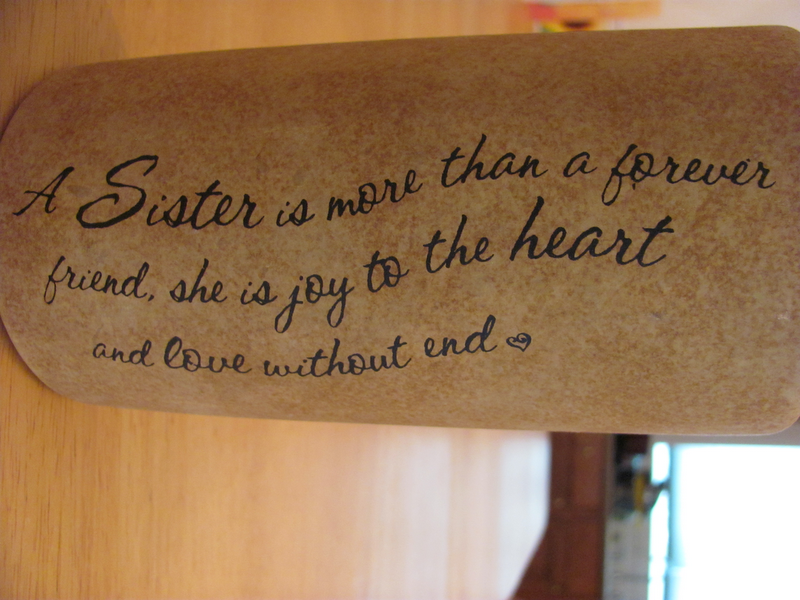 A Sister is more than a forever
friend, she is joy to the heart
and love without end